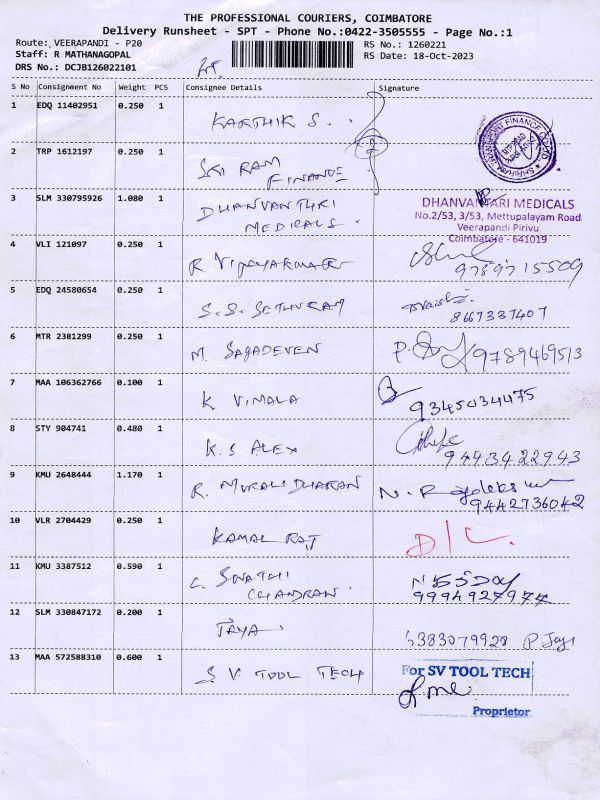 THE PROFESSIONAL COURIERS, COIMBATORE
Delivery Runsheet - SPT - Phone No.:0422-3505555 - Page No.:1
Route: VEERAPANDI - P20 RS No.: 1260221
Staff: R MATHANAGOPAL RS Date: 18-Oct-2023
DRS No.: DCJB126022101
S No Consignment No Weight PCS Consignee Details Signature
1 EDQ 11402951 0.250 1 KARTHIK S.
2 TRP 1612197 0.250 1 SRI RAM
FINANCE
3 SLM 330795926 1.080 1 DHANVANTHRI
MEDICALS.
DHANVANTARI MEDICALS
No.2/53, 3/53, Mettupalayam Road
Veerapandi Pirivu
Coimbatore - 641019
4 VLI 121097 0.250 1 R VIJAYAKUMAR
9789715509
5 EDQ 24580654 0.250 1 S.S. SETHURAM
8667337407
6 MTR 2381299 0.250 1 M. SAGADEVEN 9789469513
7 MAA 106362766 0.100 1 K VIMALA
9345034475
8 STY 904741 0.480 1 K.S ALEX
9443422943
9 KMU 2648444 1.170 1 R. MURALIDHARAN
9442736042
10 VLR 2704429 0.250 1 KAMAL RAJ D/L.
11 KMU 3387512 0.590 1 C. SWATHI
CHANDRAN.
9994927977
12 SLM 330847172 0.200 1 JAYA. 6383079928 P. Jaya
13 MAA 572588310 0.600 1 S. V. TOOL TECH
For SV TOOL TECH
Proprietor